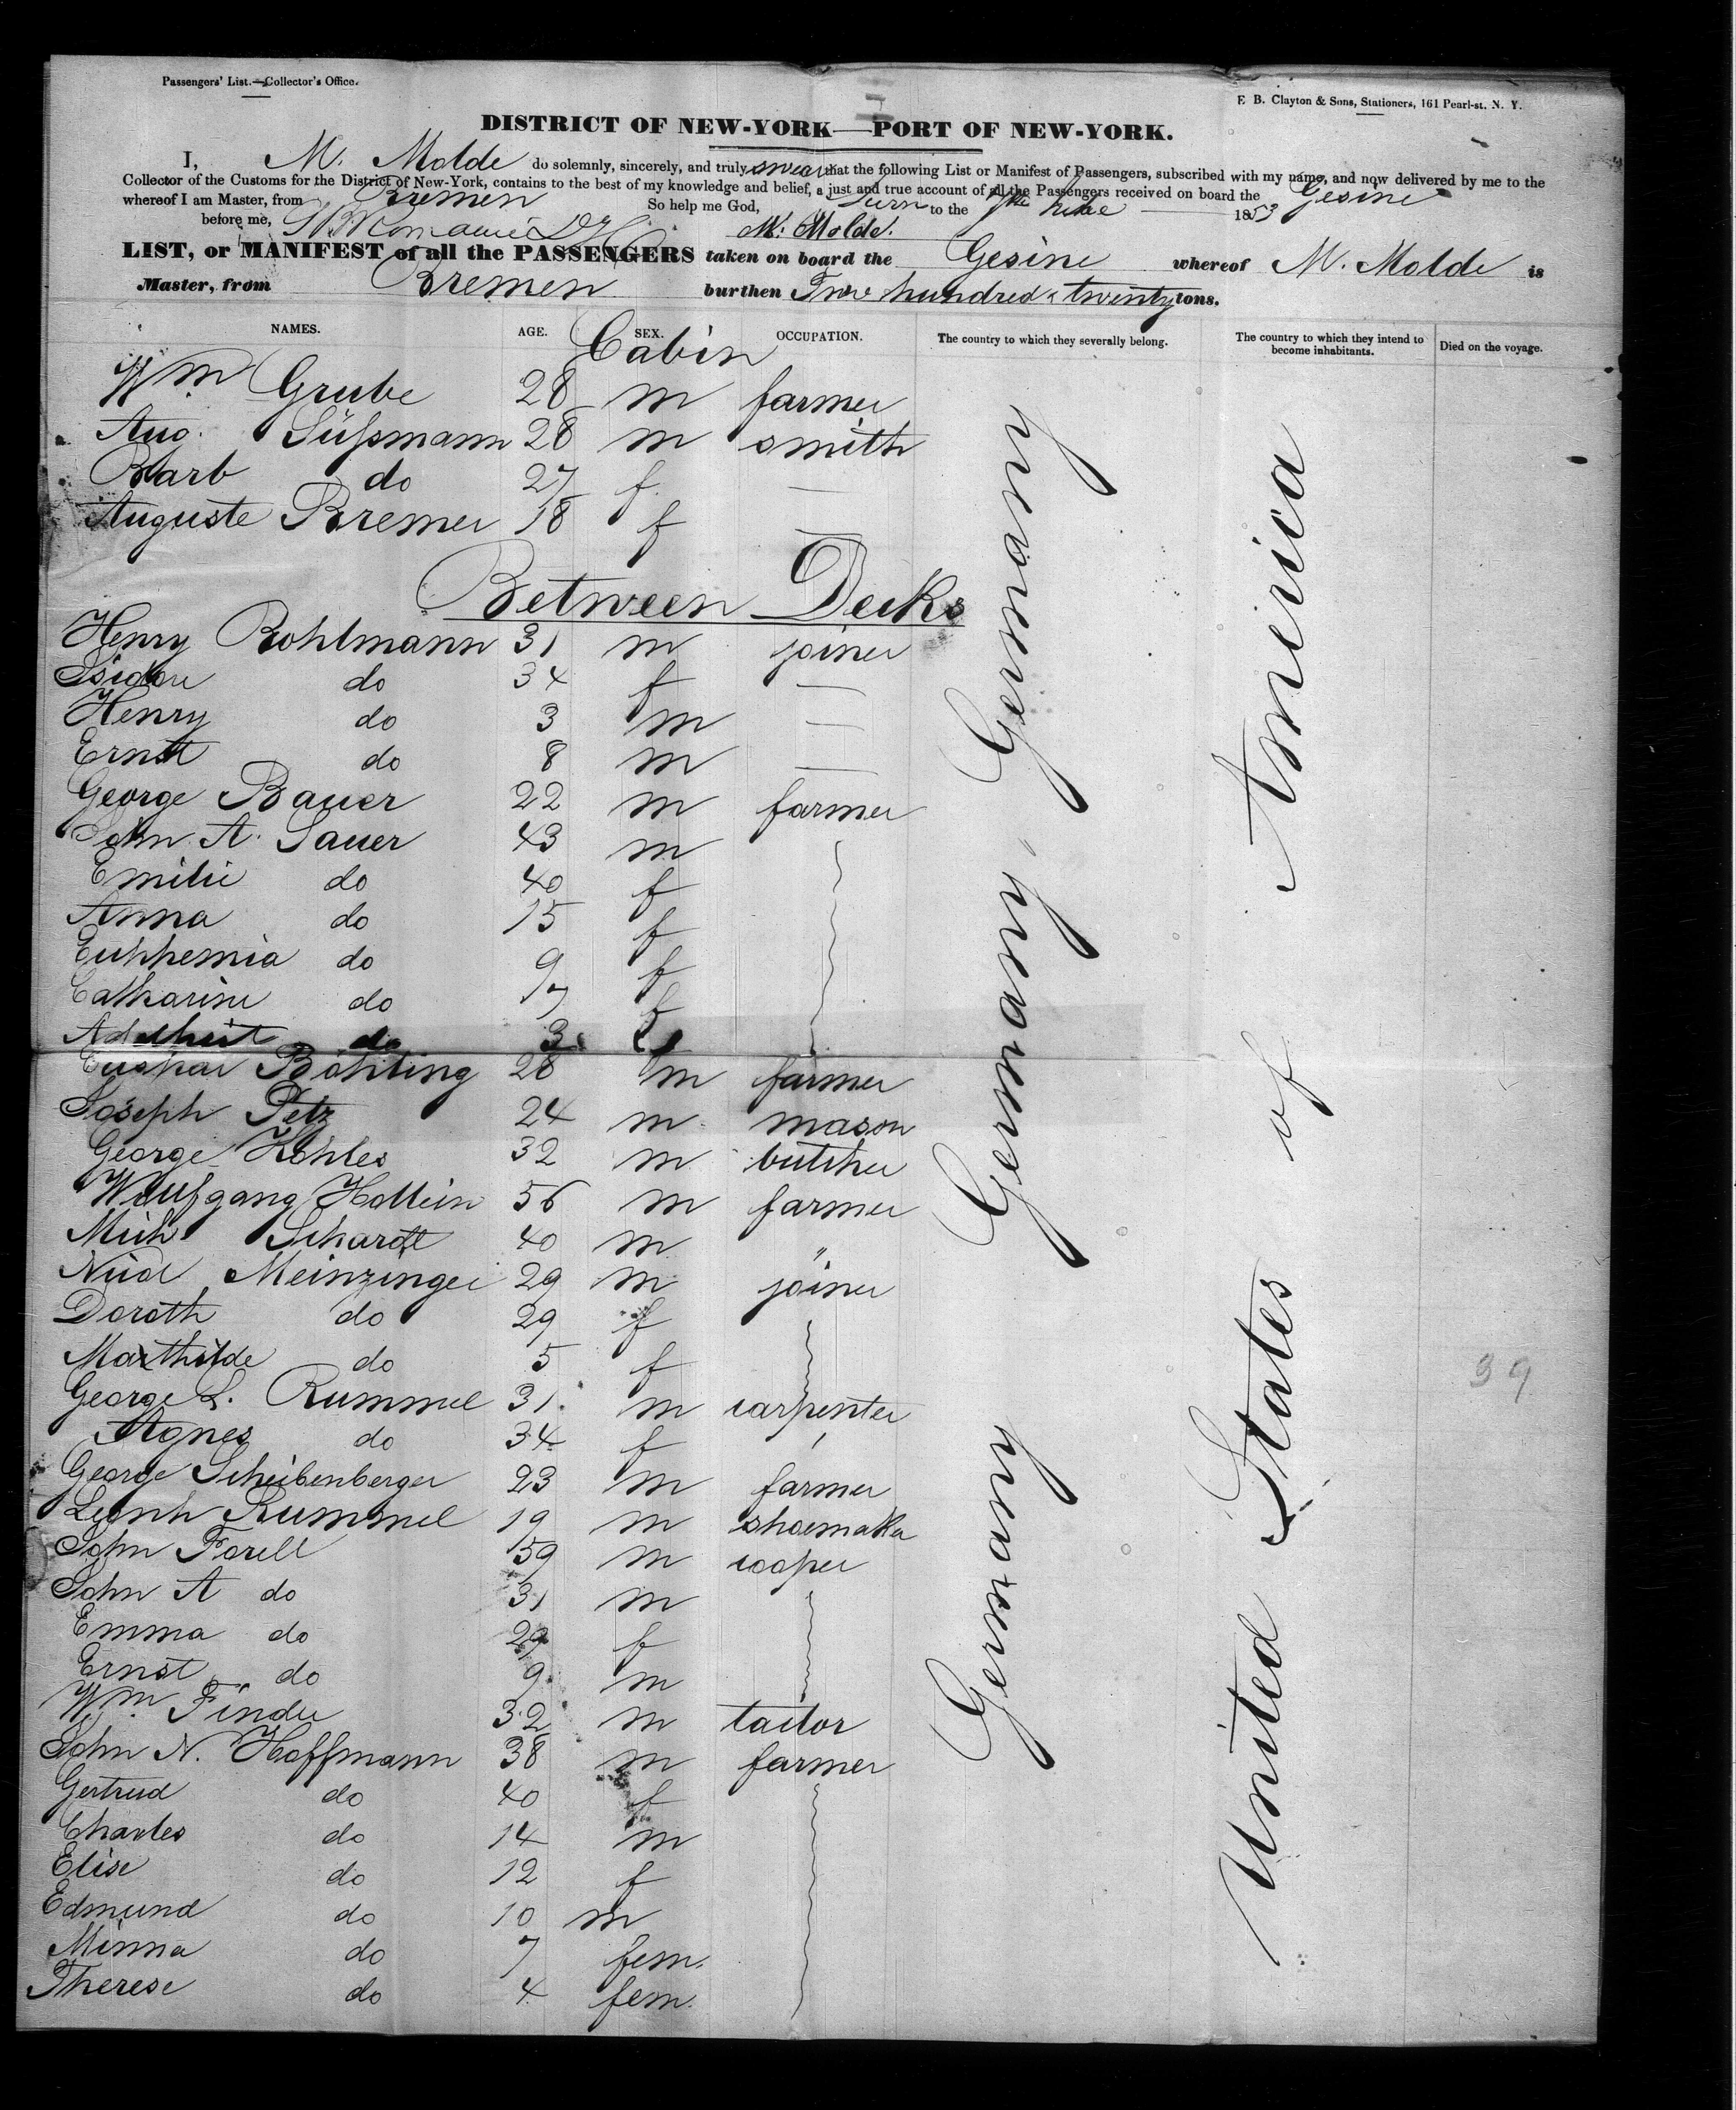 Passengers' List.—Collector's Office.
E. B. Clayton & Sons, Stationers, 161 Pearl-st. N. Y.
DISTRICT OF NEW-YORK—PORT OF NEW-YORK.
I, M. Molde do solemnly, sincerely, and truly swear that the following List or Manifest of Passengers, subscribed with my name, and now delivered by me to the
Collector of the Customs for the District of New-York, contains to the best of my knowledge and belief, a just and true account of all the Passengers received on board the Gesine
whereof I am Master, from Bremen
So help me God,
Sworn to the 1853
before me, M. Molde.
LIST, or MANIFEST of all the PASSENGERS taken on board the Gesine whereof M. Molde is
Master, from Bremen burthen Two hundred & twenty tons.
NAMES. AGE. SEX. OCCUPATION. The country to which they severally belong. The country to which they intend to become inhabitants. Died on the voyage.
Cabin
Wm Grube 28 m farmer
Aug. Süßmann 28 m smith
Barb do 27 f. —
Auguste Bremer 18 f —
Between Decks
Henry Rohlmann 31 m joiner
Isidore do 34 f —
Henry do 3 m —
Ernst do 8 m —
George Bauer 22 m farmer
John A. Sauer 43 m
Emilie do 40 f
Anna do 15 f
Euphemia do 9 f
Catharine do f
Adelheit do 3
Böhling 28 m farmer
Joseph Petz 24 m mason
George Kohles 32 m butcher
Wolfgang Hollein 56 m farmer
Mich Schardt 40 m "
Meinzinger 29 m joiner
Doroth do 29 f
Mathilde do 5 f
George L. Rummel 31 m carpenter
Agnes do 34 f
George Scheibenberger 23 m farmer
Leonh Rummel 19 m shoemaker
John Forell 59 m cooper
John A do 31 m
Emma do 29 f
Ernst do 9 m
Wm. Finder 32 m tailor
John N. Hoffmann 38 m farmer
Gertrud do 40 f
Charles do 14 m
Elise do 12 f
Edmund do 10 m
Minna do 7 fem.
Therese do 4 fem.
Germany Germany Germany
United States of America
39